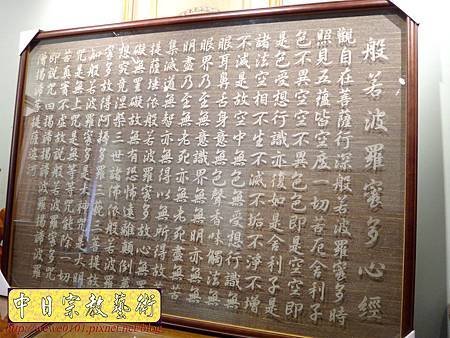 般若波羅蜜多心經
觀自在菩薩行深般若波羅蜜多時
照見五蘊皆空度一切苦厄舍利子
色不異空空不異色色即是空空即
是色受想行識亦復如是舍利子是
諸法空相不生不滅不垢不淨不增
不減是故空中無色無受想行識無
眼耳鼻舌身意無色聲香味觸法無
眼界乃至無意識界無無明亦無無
明盡乃至無老死亦無老死盡無苦
集滅道無智亦無得以無所得故菩
提薩埵依般若波羅蜜多故心無罣
礙無罣礙故無有恐怖遠離顛倒夢
想究竟涅槃三世諸佛依般若波羅
蜜多故得阿耨多羅三藐三菩提故
知般若波羅蜜多是大神咒是大明
咒是無上咒是無等等咒能除一切
苦真實不虛故說般若波羅蜜多咒
即說咒曰揭諦揭諦波羅揭諦波羅
僧揭諦菩提薩婆訶
中日宗教藝術
http://wewe0101.pixnet.net/blog